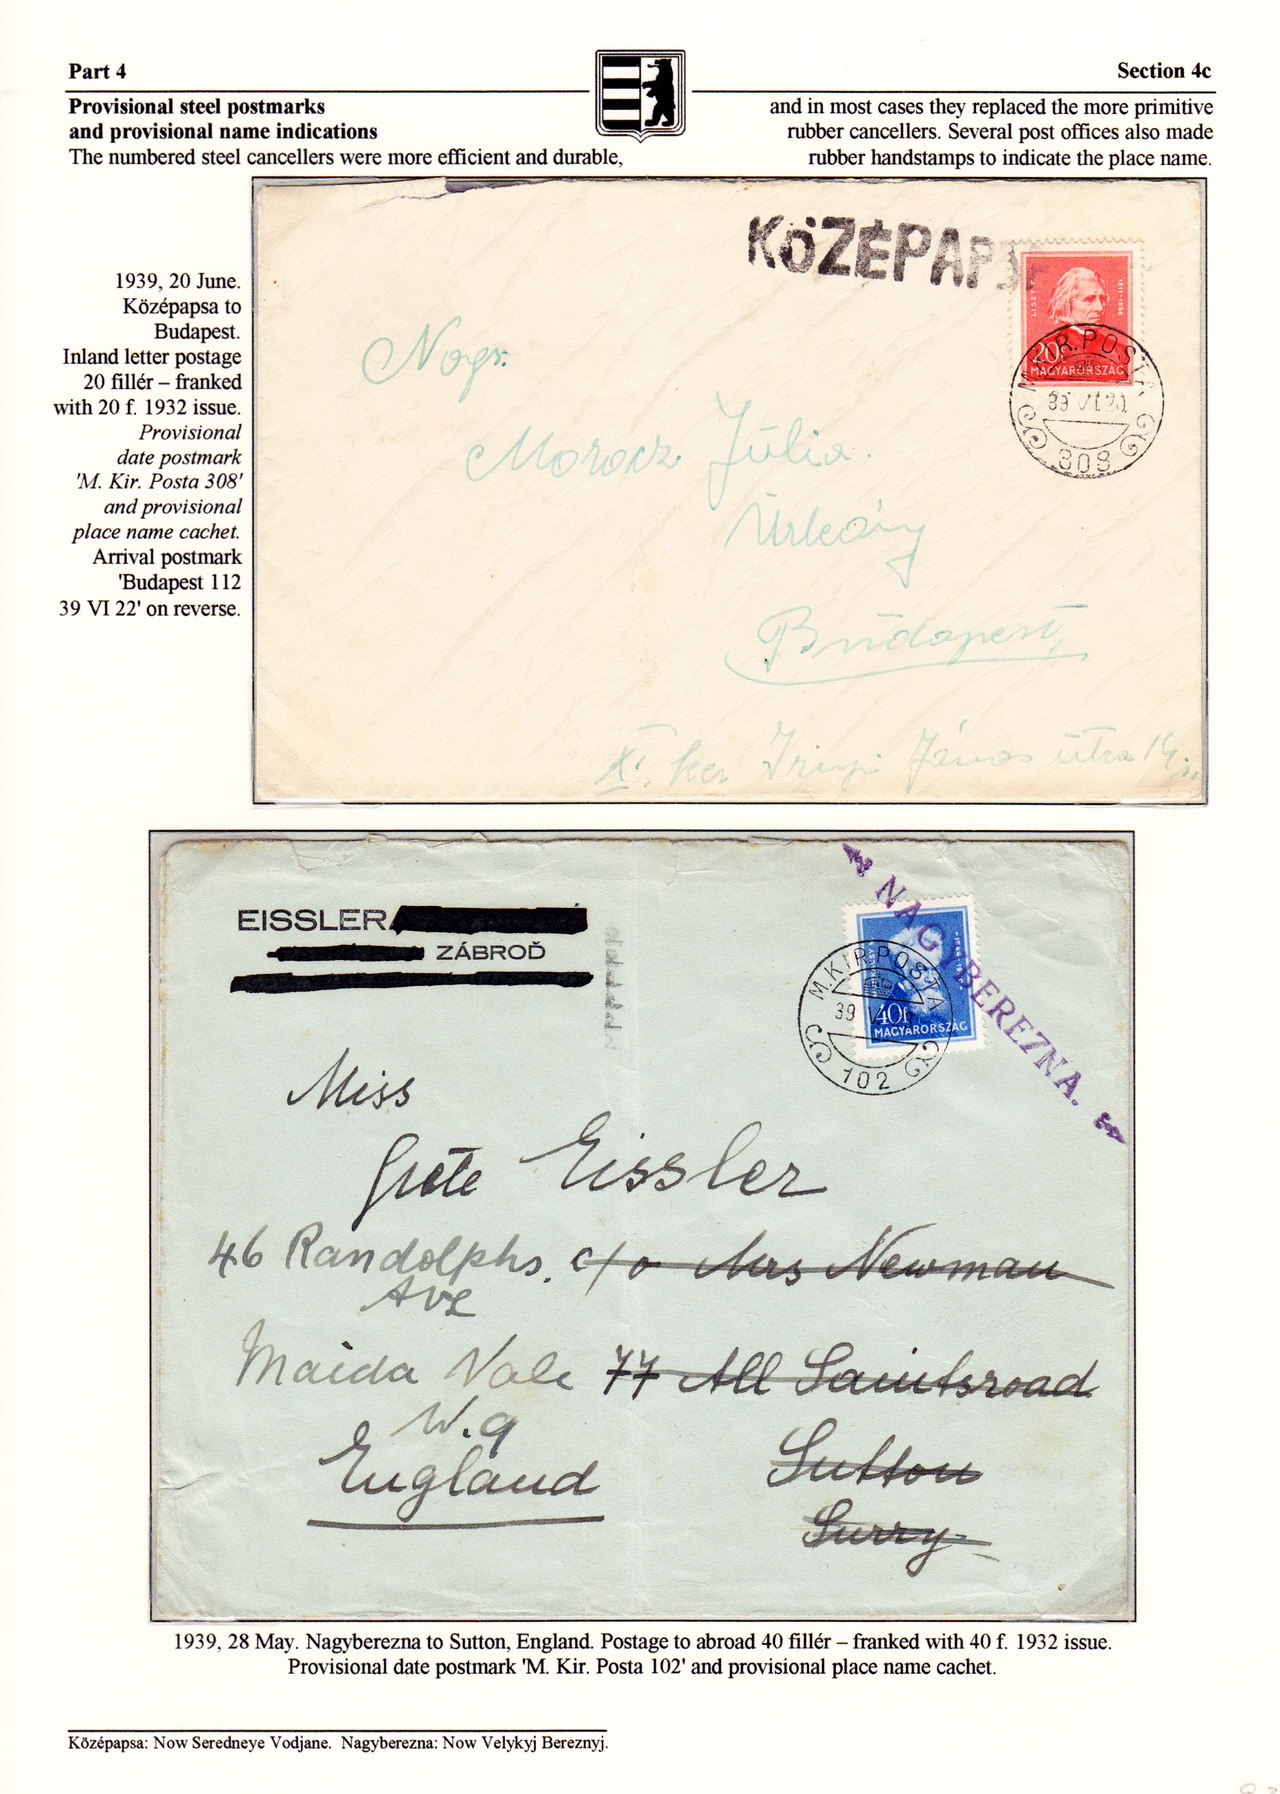 Part 4
Section 4c
Provisional steel postmarks
and provisional name indications
The numbered steel cancellers were more efficient and durable,
and in most cases they replaced the more primitive
rubber cancellers. Several post offices also made
rubber handstamps to indicate the place name.
1939, 20 June.
Középapsa to
Budapest.
Inland letter postage
20 fillér – franked
with 20 f. 1932 issue.
Provisional
date postmark
'M. Kir. Posta 308'
and provisional
place name cachet.
Arrival postmark
'Budapest 112
39 VI 22' on reverse.
KÖZÉPAPSA
LISZT
1811-1886
20f
MAGYARORSZÁG
M. KIR. POSTA
39 VI 20
308
Júlia.
Budapest,
X. ker Irinyi János utca 14
EISSLER
ZÁBROĎ
NAGYBEREZNA.
40f
MAGYARORSZÁG
M. KIR. POSTA
39
102
Miss
Grete Eissler
46 Randolphs. c/o Mrs Newman
Ave
Maida Vale 77 All Saintsroad
W.9
England
Sutton
Surry
1939, 28 May. Nagyberezna to Sutton, England. Postage to abroad 40 fillér – franked with 40 f. 1932 issue.
Provisional date postmark 'M. Kir. Posta 102' and provisional place name cachet.
Középapsa: Now Seredneye Vodjane. Nagyberezna: Now Velykyj Bereznyj.